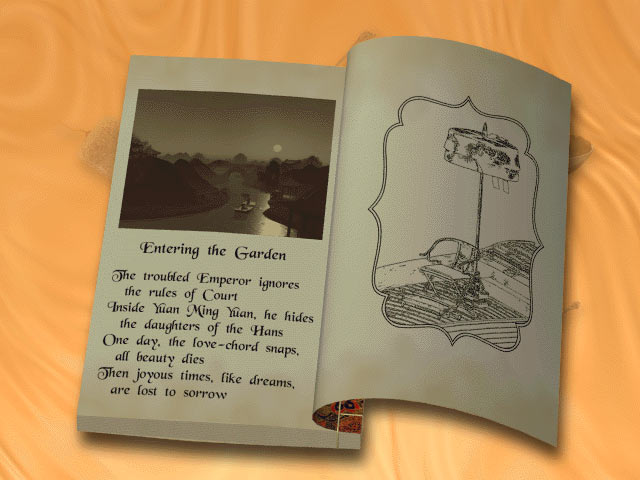 Entering the Garden
The troubled Emperor ignores
the rules of Court
Inside Yüan Ming Yüan, he hides
the daughters of the Hans
One day, the love-chord snaps,
all beauty dies
Then joyous times, like dreams,
are lost to sorrow